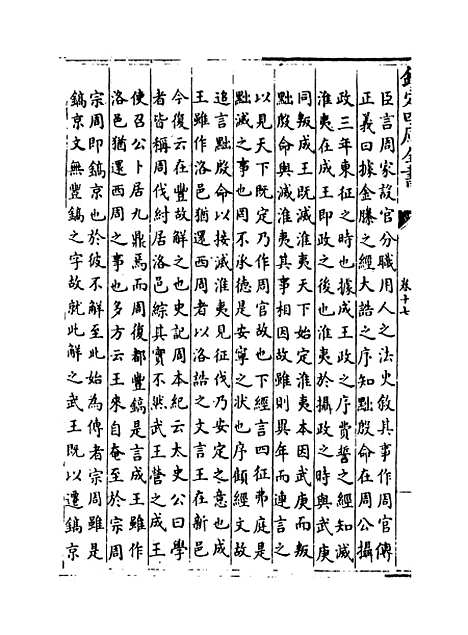 欽定四庫全書
卷十七
臣言周家設官分職用人之法史敘其事作周官傳
正義曰據金縢之經大誥之序知黜殷命在周公攝
政三年東征之時也據成王政之序費誓之經知滅
淮夷在成王即政之後也淮夷於攝政之時與武庚
同叛成王既滅淮夷天下始定淮夷本因武庚而叛
黜殷命與滅淮夷其事相因故雖則異年而連言之
以見天下既定乃作周官故也下經言四征弗庭是
黜滅之事也不承德是安寧之狀也序顧經文故
追言黜殷命以接滅淮夷見征伐乃安定之意也成
王雖作洛邑猶還西周者以洛誥之文言王在新邑
今復云在豐故解之也史記周本紀云太史公曰學
者皆稱周伐紂居洛邑綜其實不然武王營之成王
使召公卜居九鼎焉而周復都豐鎬是言成王雖作
洛邑猶還西周之事也多方云王來自奄至於宗周
宗周即鎬京也於彼不解至此始為傳者宗周雖是
鎬京文無豐鎬之字故就此解之武王既以遷鎬京